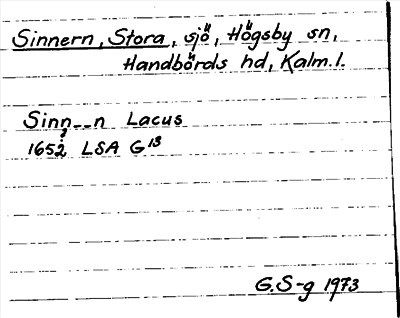 Sinnern, Stora, sjö, Högsby sn,
Handbörds hd, Kalm. l.
Sinn__n Lacus
1652 LSA G13
G.S-g 1973